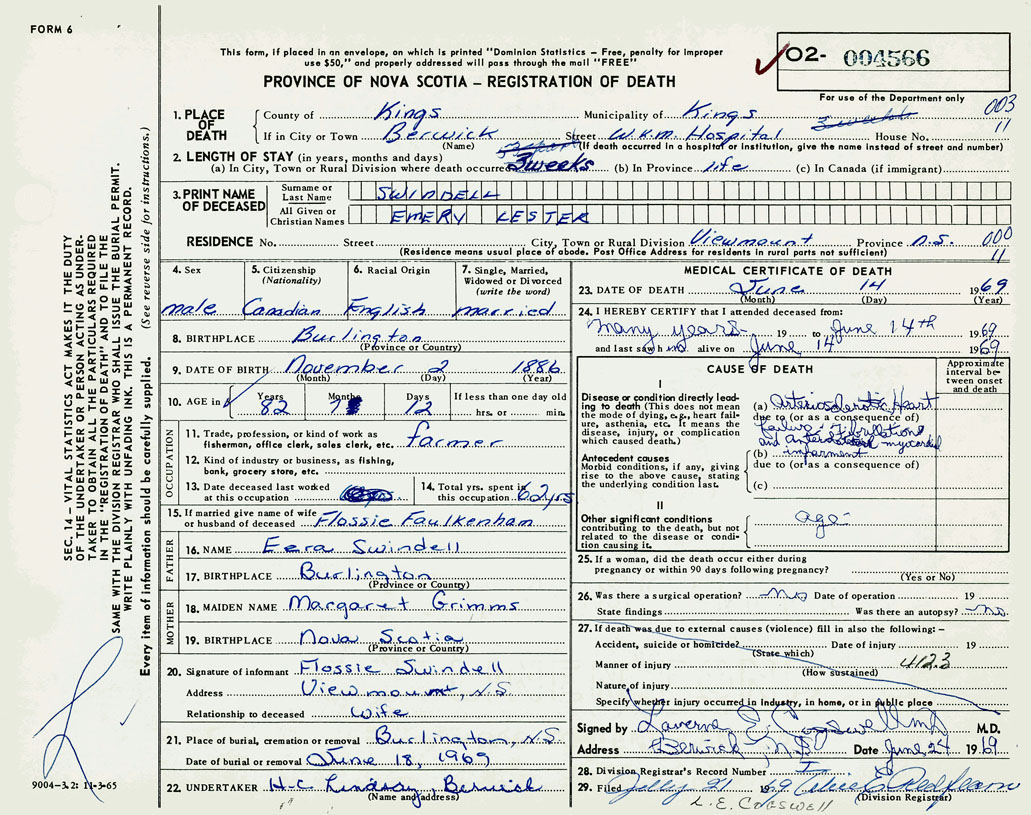 FORM 6
This form, if placed in an envelope, on which is printed "Dominion Statistics – Free, penalty for improper
use $50," and properly addressed will pass through the mail "FREE"
O2- 004566
PROVINCE OF NOVA SCOTIA – REGISTRATION OF DEATH
For use of the Department only
003
11
1. PLACE OF DEATH
County of Kings Municipality of Kings
If in City or Town Berwick Street W.K.M. Hospital House No.
(Name) (If death occurred in a hospital or institution, give the name instead of street and number)
2. LENGTH OF STAY (in years, months and days)
(a) In City, Town or Rural Division where death occurred 3 weeks (b) In Province life (c) In Canada (if immigrant)
3. PRINT NAME OF DECEASED
Surname or Last Name SWINDELL
All Given or Christian Names EMERY LESTER
RESIDENCE No. Street City, Town or Rural Division Viewmount Province N.S. 000
(Residence means usual place of abode. Post Office Address for residents in rural parts not sufficient) 11
4. Sex 5. Citizenship (Nationality) 6. Racial Origin 7. Single, Married, Widowed or Divorced (write the word)
male Canadian English married
8. BIRTHPLACE Burlington
(Province or Country)
9. DATE OF BIRTH November 2 1886
(Month) (Day) (Year)
10. AGE in Years Months Days If less than one day old
82 7 12 hrs. or min.
OCCUPATION
11. Trade, profession, or kind of work as
fisherman, office clerk, sales clerk, etc. farmer
12. Kind of industry or business, as fishing,
bank, grocery store, etc.
13. Date deceased last worked
at this occupation
14. Total yrs. spent in
this occupation 62 yrs
15. If married give name of wife
or husband of deceased Flossie Faulkenham
FATHER
16. NAME Ezra Swindell
17. BIRTHPLACE Burlington
(Province or Country)
MOTHER
18. MAIDEN NAME Margaret Grimms
19. BIRTHPLACE Nova Scotia
(Province or Country)
20. Signature of informant Flossie Swindell
Address Viewmount, N.S.
Relationship to deceased Wife
21. Place of burial, cremation or removal Burlington, N.S.
Date of burial or removal June 18, 1969
22. UNDERTAKER H.C. Lindsay, Berwick
(Name and address)
MEDICAL CERTIFICATE OF DEATH
23. DATE OF DEATH June 14 1969
(Month) (Day) (Year)
24. I HEREBY CERTIFY that I attended deceased from:
many years 19 to June 14th 1969
and last saw him alive on June 14 1969
CAUSE OF DEATH
Approximate interval between onset and death
I
Disease or condition directly lead-
ing to death (This does not mean
the mode of dying, e.g., heart fail-
ure, asthenia, etc. It means the
disease, injury, or complication
which caused death.)
(a) Arteriosclerotic Heart
due to (or as a consequence of)
failure - Fibrillation
and myocardial
(b) impairment
due to (or as a consequence of)
(c)
Antecedent causes
Morbid conditions, if any, giving
rise to the above cause, stating
the underlying condition last.
II
Other significant conditions
contributing to the death, but not
related to the disease or condi-
tion causing it.
age
25. If a woman, did the death occur either during
pregnancy or within 90 days following pregnancy?
(Yes or No)
26. Was there a surgical operation? no Date of operation 19
State findings Was there an autopsy? no
27. If death was due to external causes (violence) fill in also the following: –
Accident, suicide or homicide? Date of injury 19
(State which)
Manner of injury 4123
(How sustained)
Nature of injury
Specify whether injury occurred in industry, in home, or in public place
Signed by Laverne E. Cogswell M.D.
Address Berwick, N.S. Date June 24 1969
28. Division Registrar's Record Number
29. Filed July 21 1969
(Division Registrar)
L. E. COGSWELL
SEC. 14 – VITAL STATISTICS ACT MAKES IT THE DUTY
OF THE UNDERTAKER OR PERSON ACTING AS UNDER-
TAKER TO OBTAIN ALL THE PARTICULARS REQUIRED
IN THE "REGISTRATION OF DEATH" AND TO FILE THE
SAME WITH THE DIVISION REGISTRAR WHO SHALL ISSUE THE BURIAL PERMIT.
WRITE PLAINLY WITH UNFADING INK. THIS IS A PERMANENT RECORD.
Every item of information should be carefully supplied. (See reverse side for instructions.)
9004-3.2: 11-3-65